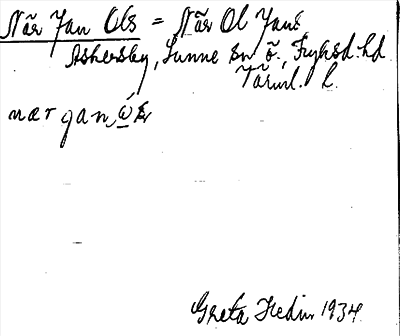 När Jan Ols = När Ol Jans
Askersby, Sunne sn ö., Fryksd. hd
Värml. l.
nær jan,
Greta Hedin 1934